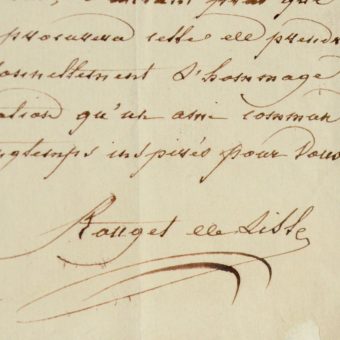 que
procurera celle de prendr
onnellement l'hommage
ation qu'un ami commun
ngtemps inspirés pour vous
Rouget de Lisle